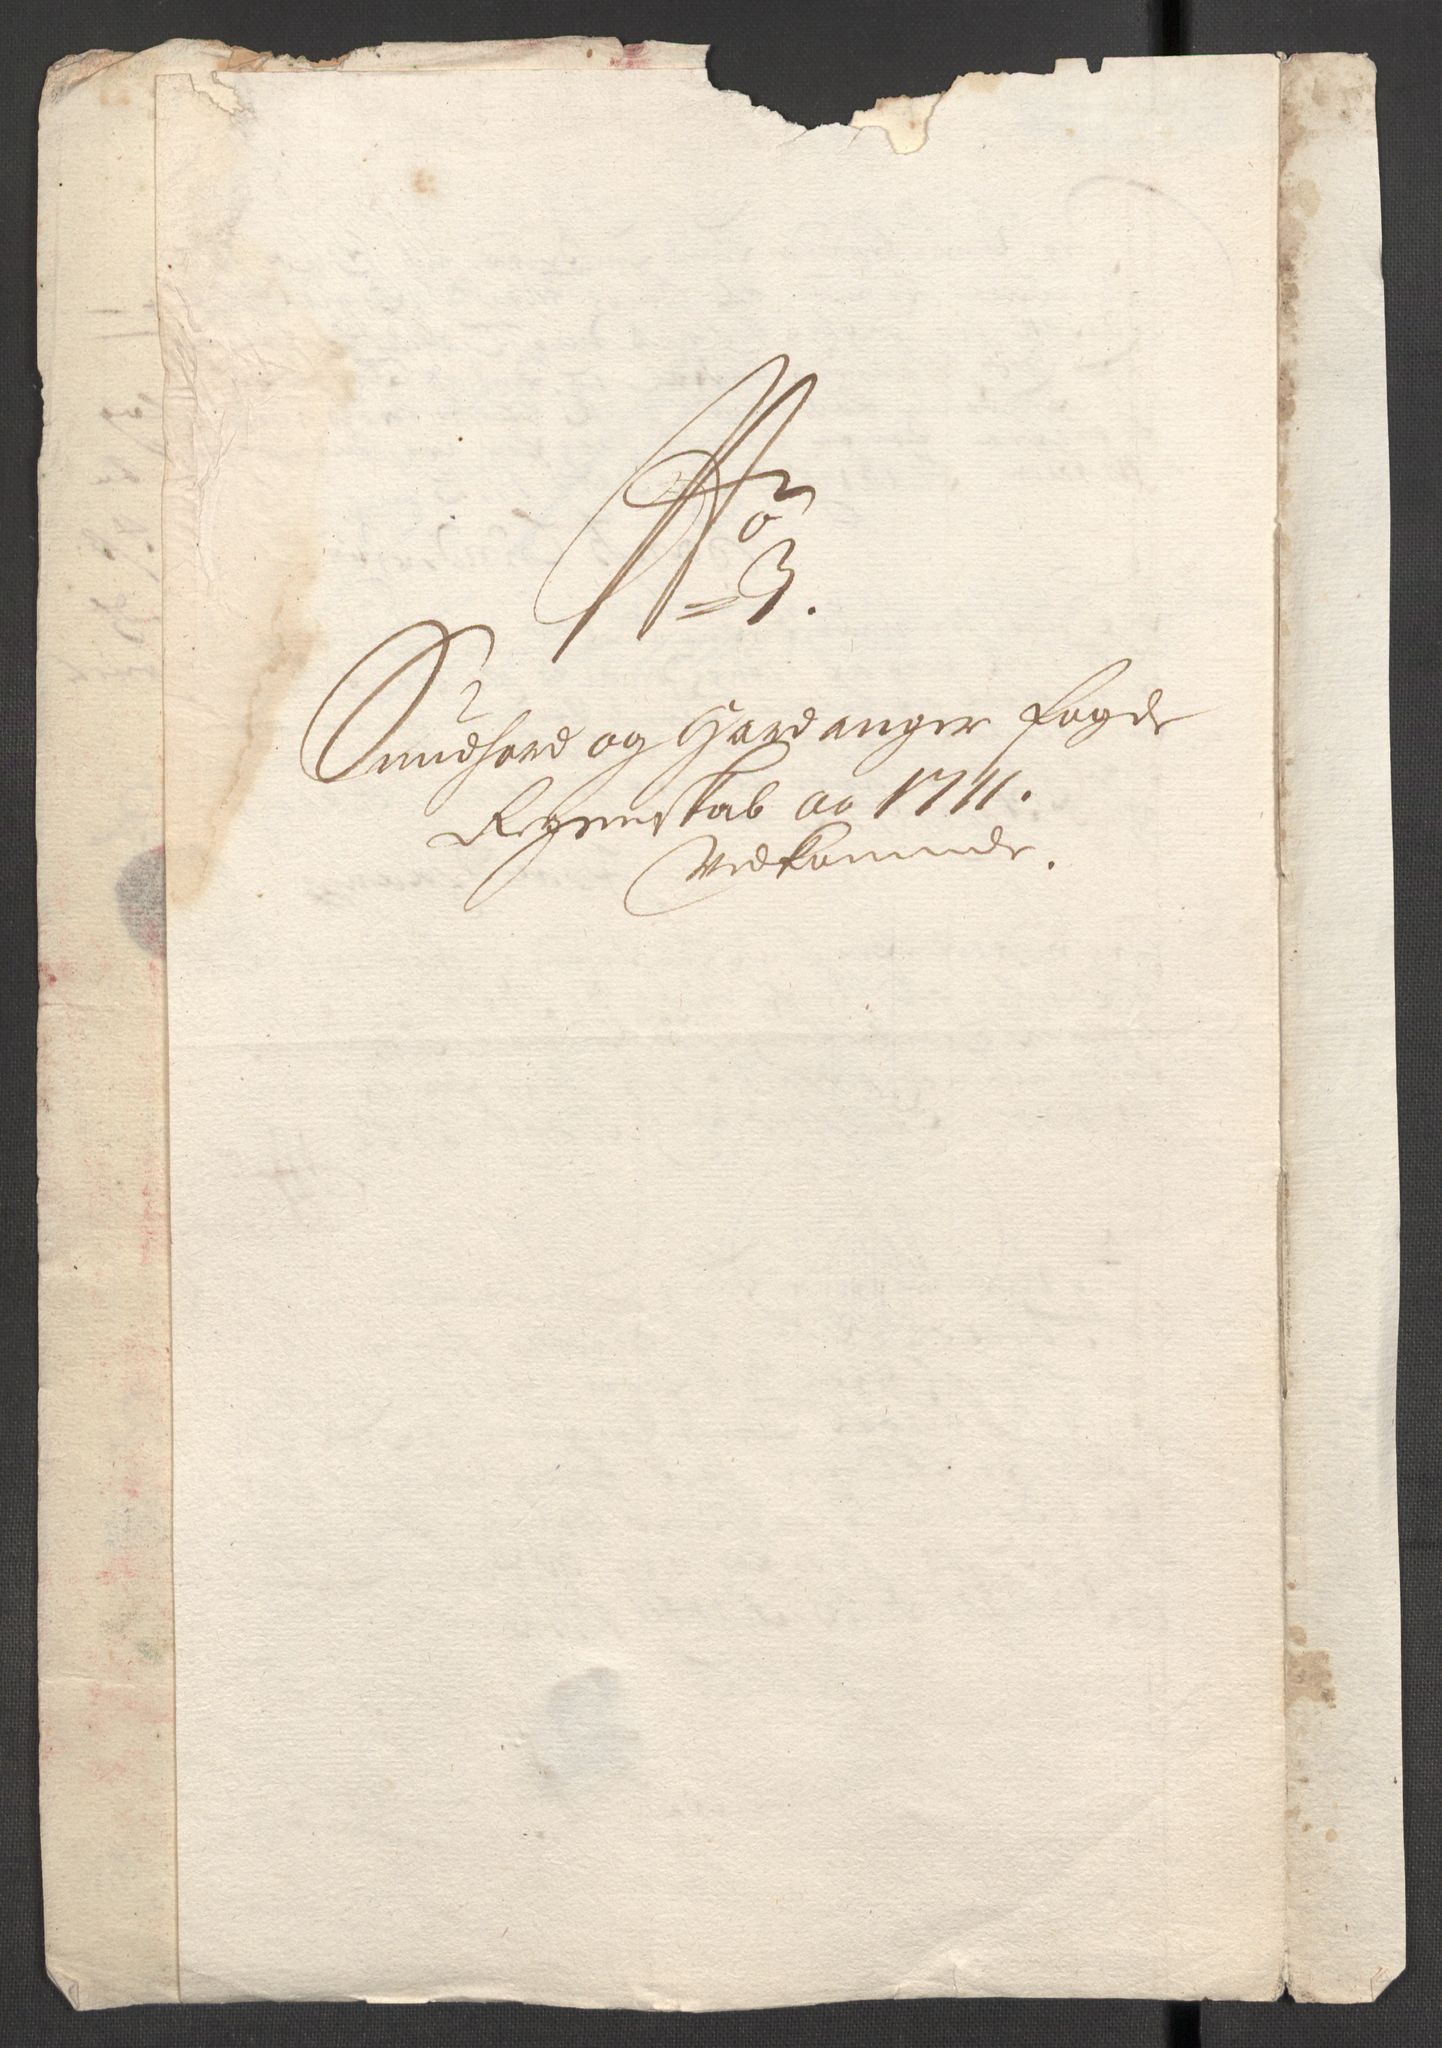 No
3.
Sundhord og Hardanger fogde
Regenskab ao 1711.
Vedkommende.